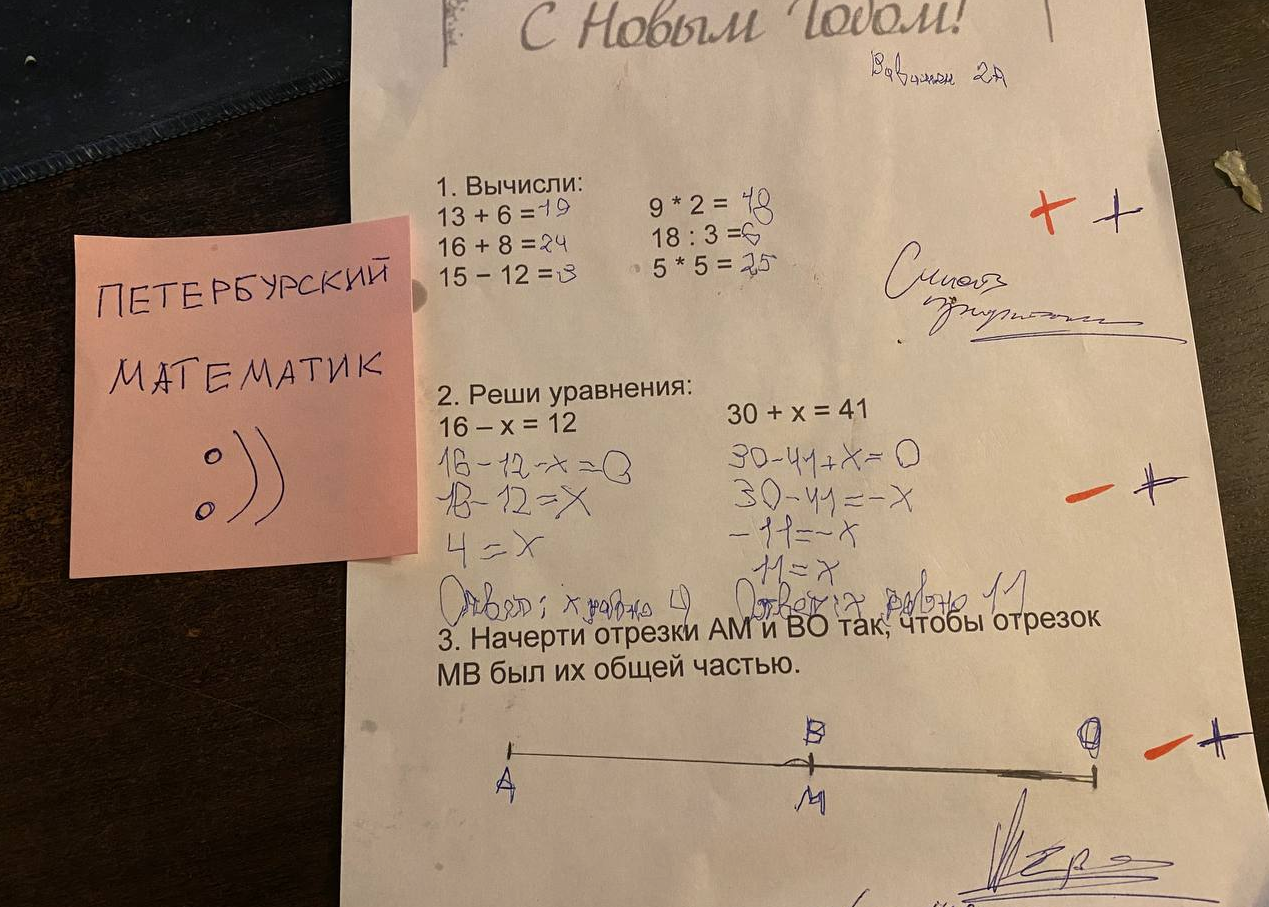 С Новым Годом!
2А
1. Вычисли:
13 + 6 = 19
16 + 8 = 24
15 – 12 = 3
9 * 2 = 18
18 : 3 = 6
5 * 5 = 25
+ +
ПЕТЕРБУРСКИЙ
МАТЕМАТИК
:))
2. Реши уравнения:
16 – x = 12
16-12-x=0
16-12=x
4=x
Ответ: x равно 4
30 + x = 41
30-41+x=0
30-41=-x
-11=-x
11=x
Ответ: x равно 11
- +
3. Начерти отрезки АМ и ВО так, чтобы отрезок
МВ был их общей частью.
В О
А М
- +